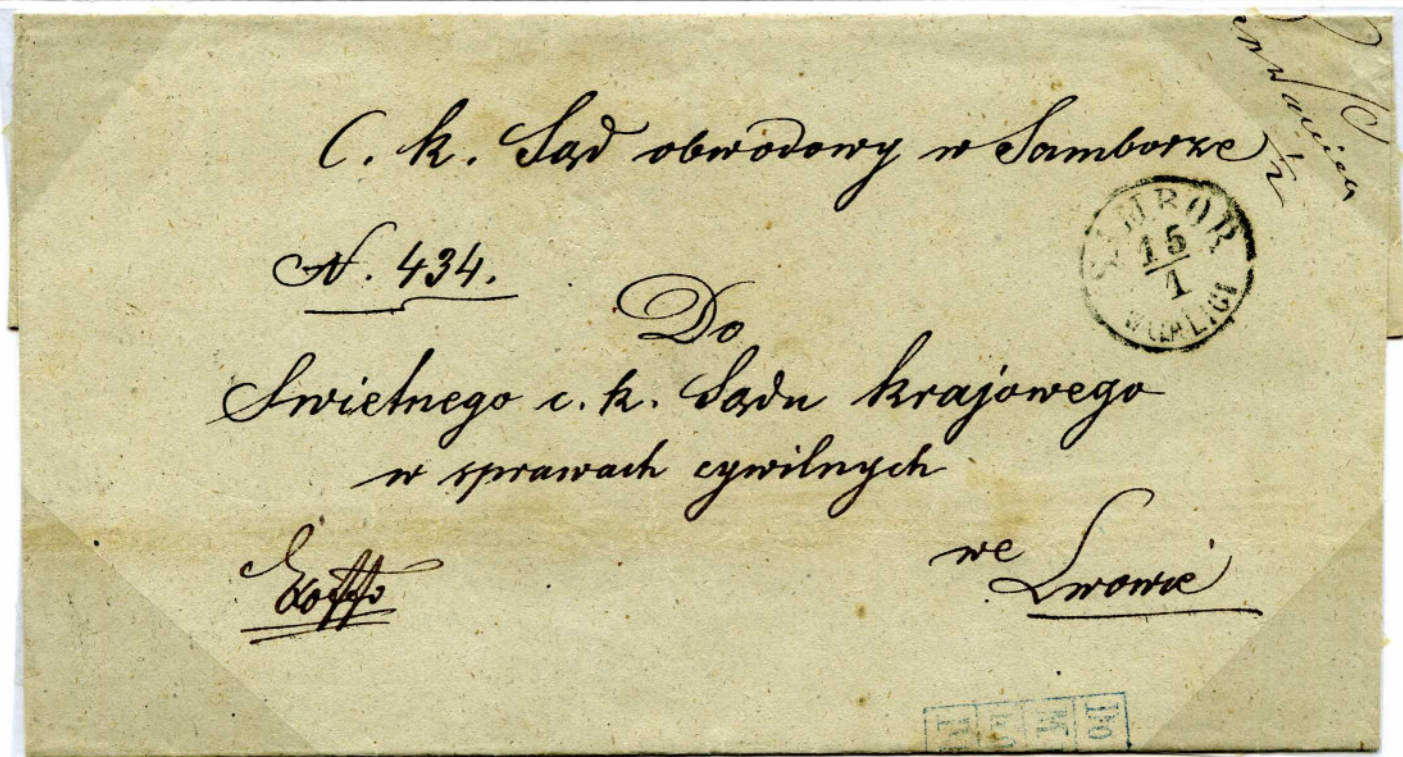 C. k. Sąd obwodowy w Samborze
N. 434.
SAMBOR
15
1
W GALICI
Do
Swietnego c. k. Sądu krajowego
w sprawach cywilnych
we Lwowie